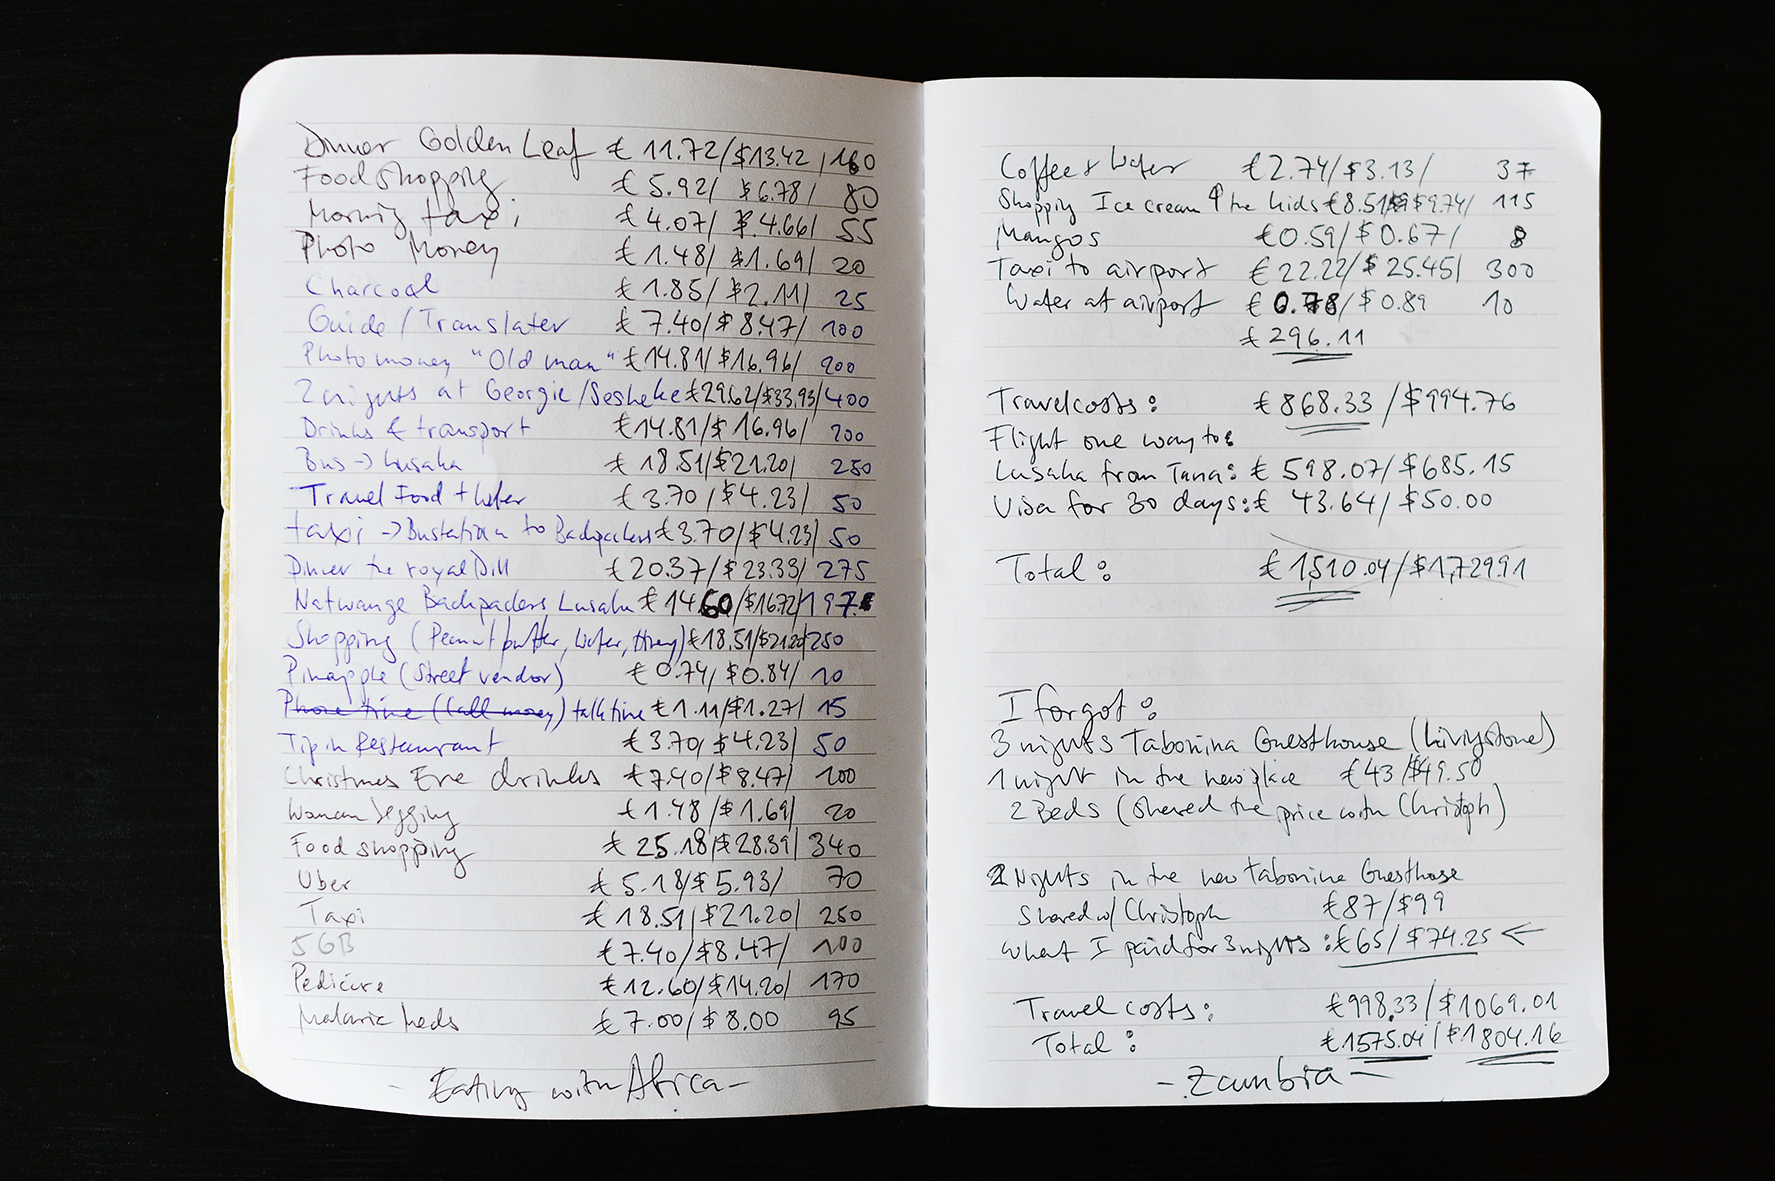 Dinner Golden Leaf € 11.72/$13.42 /160
Food shopping € 5.92/ $6.78/ 80
Morning taxi € 4.07/ $4.66/ 55
Photo Money € 1.48/ $1.69/ 20
Charcoal € 1.85/ $2.11/ 25
Guide/Translater € 7.40/$8.47/ 100
Photo money "Old man" €14.81/$16.96/ 200
2 nights at Georgie/Sesheke €29.62/$33.93/400
Drinks & transport €14.81/$16.96/ 200
Bus -> Lusaka € 18.51/$21.20/ 250
Travel Food + Water € 3.70/$4.23/ 50
taxi -> Bustation to Backpackers €3.70/$4.23/ 50
Dinner the royal Dill € 20.37/$23.33/ 275
Natwange Backpackers Lusaka € 14.60/$16.72/197
Shopping (Peanut butter, Water, Honey) €18.51/$21.20/250
Pineapple (Street vendor) € 0.74/ $0.84/ 10
Phone time (Call money) talktime €1.11/$1.27/ 15
Tip in Restaurant € 3.70/ $4.23/ 50
Christmas Eve drinks €7.40/$8.47/ 100
Woman begging € 1.48/$1.69/ 20
Food shopping € 25.18/$28.39/ 340
Uber € 5.18/$5.93/ 70
Taxi € 18.51/$21.20/ 250
5GB €7.40/$8.47/ 100
Pedicure €12.60/$14.20/ 170
Malaria Meds € 7.00/$8.00 95
- Eating with Africa -
Coffee + Water €2.74/$3.13/ 37
Shopping Ice cream 4 the kids €8.51/$9.74/ 115
Mangos €0.59/$0.67/ 8
Taxi to airport € 22.22/$25.45/ 300
Water at airport € 0.78/$0.89 10
€ 296.11
Travelcosts: € 868.33/$994.76
Flight one way to:
Lusaka from Tana: € 598.07/$685.15
Visa for 30 days: € 43.64/$50.00
Total: € 1,510.04/$1,729.91
I forgot:
3 nights Tabonina Guesthouse (Livingstone)
1 night in the new place €43/$49.50
2 Beds (shared the price with Christoph)
2 Nights in the new Tabonina Guesthouse
Shared w/ Christoph €87/$99
What I paid for 3 nights: €65/$74.25 <-
Travel costs: €998.33/$1069.01
Total: €1575.04/$1804.16
- Zambia -